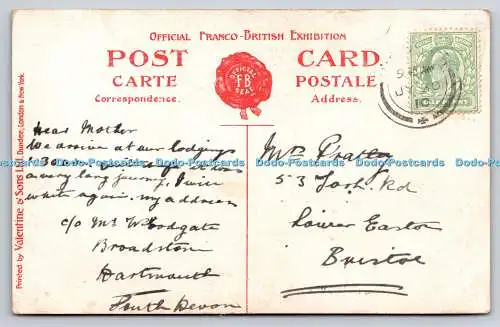 OFFICIAL FRANCO-BRITISH EXHIBITION
POST CARD.
CARTE POSTALE
Correspondence. Address.
OFFICIAL
F.B
SEAL
Printed by Valentine & Sons Ltd. Dundee, London & New York.
Dear Mother
We arrive at our lodgings
it was
a very long journey, I will
write again, my address
c/o Mr Woodgate
Broadstone
Dartmouth
South Devon
Mrs
53 York Rd
Lower Easton
Bristol
Dodo-Postcards Dodo-Postcards Dodo-Postcards Dodo-Postcards Dodo-Postcards